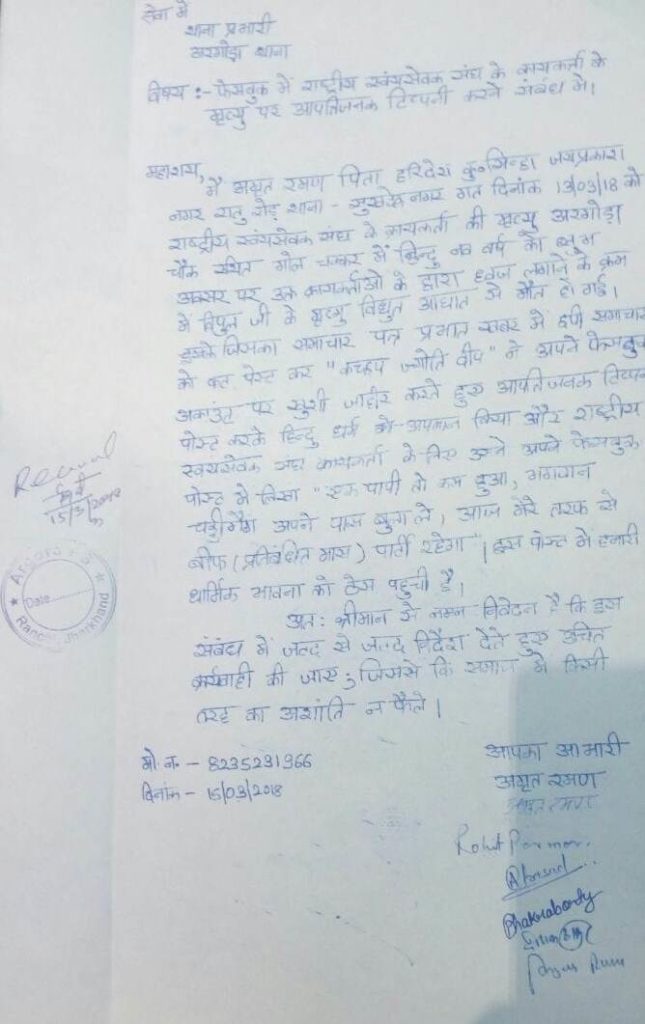 सेवा में
थाना प्रभारी
अरगोड़ा थाना
विषय :- फेसबुक में राष्ट्रीय स्वंयसेवक संघ के कार्यकर्ता के
मृत्यु पर आपतिजनक टिप्पनी करने संबंध में।
महाशय,
मैं अमृत रमण पिता हरिदेश कु० जयप्रकाश
नगर रातु रोड़ थाना - सुखदेव नगर गत दिनांक 13/03/18 को
राष्ट्रीय स्वंयसेवक संघ के कार्यकर्ता की मृत्यु अरगोड़ा
चौक स्थित गोल चक्कर में हिन्दु नव वर्ष को शुभ
अवसर पर उक्त कार्यकर्ताओं के द्वारा ध्वज लगाने के क्रम
में विपुल जी के मृत्यु विद्युत आघात से मौत हो गई।
इसके जिसका समाचार पत्र प्रभात खबर में छपी समाचार
को कल पोस्ट कर " कच्छप ज्योति दीप " ने अपने फेसबुक
अकाउंट पर खुशी जाहीर करते हुए आपतिजनक टिप्पनी
पोस्ट करके हिन्दु धर्म को अपमान किया और राष्ट्रीय
स्वयंसेवक संघ कार्यकर्ता के लिए उसने अपने फेसबुक
पोस्ट में लिखा " एक पापी तो कम हुआ, भगवान
अपने पास बुला ले, आज मेरे तरफ से
बीफ (प्रतिबंधित मांस) पार्टी रहेगा "। इस पोस्ट में हमारी
धार्मिक भावना को ठेस पहुची है।
अत: श्रीमान से नम्न निवेदन है कि इस
संबंध में जल्द से जल्द निर्देश देते हुए उचित
कार्यवाही की जाए; जिससे कि समाज में किसी
तरह का अशांति न फैले।
मो. न. - 8235291966
दिनांक - 15/03/2018
आपका आभारी
अमृत रमण
अमृत रमण
Rohit
Received
15/3/2018
Argora P.S
Date
Ranchi, Jharkhand